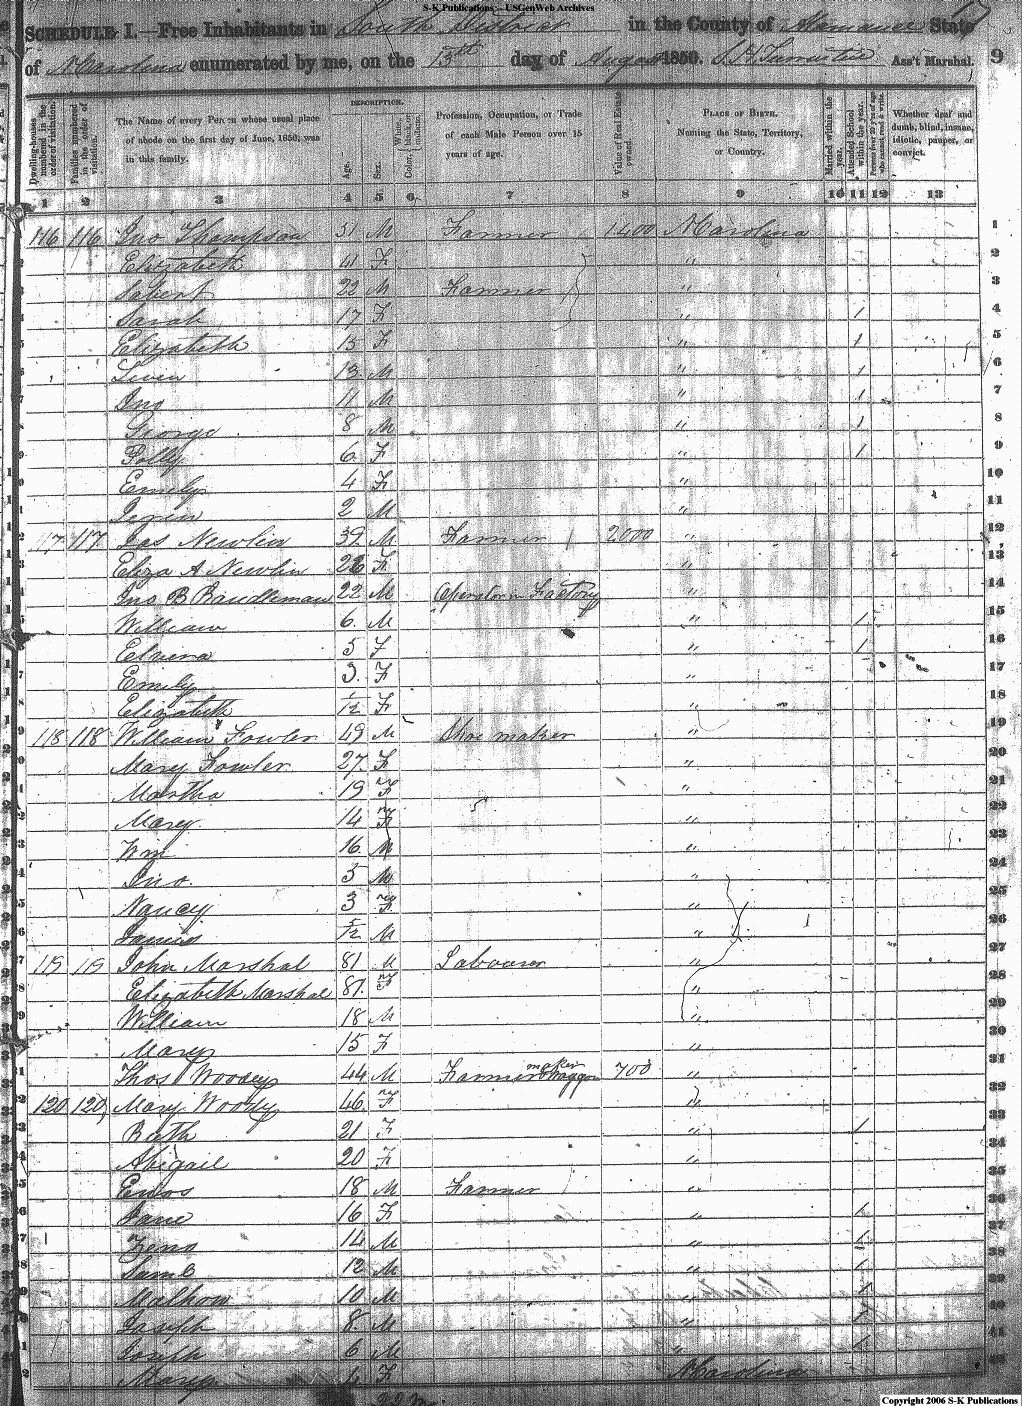 S-K Publications -- USGenWeb Archives
SCHEDULE I.—Free Inhabitants in South District in the County of Alamance State
of N Carolina enumerated by me, on the 13th day of August 1850. Ass't Marshal. 9
Dwelling-houses numbered in the order of visitation.
Families numbered in the order of visitation.
The Name of every Person whose usual place of abode on the first day of June, 1850, was in this family.
DESCRIPTION.
Age.
Sex.
Color, White, black, or mulatto.
Profession, Occupation, or Trade of each Male Person over 15 years of age.
Value of Real Estate owned.
PLACE OF BIRTH.
Naming the State, Territory, or Country.
Married within the year.
Attended School within the year.
Persons over 20 years of age who cannot read & write.
Whether deaf and dumb, blind, insane, idiotic, pauper, or convict.
1 2 3 4 5 6 7 8 9 10 11 12 13
116 116 Jno Thompson 51 M Farmer 1400 N Carolina 1
Elizabeth 41 F " 2
22 M Farmer " 3
Sarah 17 F " 1 4
Elizabeth 15 F " 1 5
Leven 13 M " 1 6
Jno 11 M " 1 7
George 8 M " 1 8
Polly 6 F " 1 9
Emily 4 F " 10
2 M " 11
117 117 Jas Newlin 39 M Farmer 2000 " 12
Eliza A Newlin 26 F " 13
Jno B Raudleman 22 M Operator in Factory " 14
William 6 M " 1 15
Elvira 5 F " 1 16
Emily 3 F " 17
Elizabeth 1/12 F " 18
118 118 William Fowler 49 M Shoe maker " 19
Mary Fowler 27 F " 20
Martha 19 F " 21
Mary 14 F " 22
Wm 16 M " 23
Jno. 5 M " 24
Nancy 3 F " 25
James 5/12 M " 26
119 119 John Marshal 81 M Labourer " 27
Elizabeth Marshal 87 F " 28
William 18 M " 29
Mary 15 F " 30
Thos Woody 44 M Farmer Waggon maker 700 " 31
120 120 Mary Woody 46 F " 32
Ruth 21 F " 1 33
Abigail 20 F " 34
Enos 18 M Farmer " 35
Jane 16 F " 1 36
Zeno 14 M " 1 37
Saml 12 M " 1 38
10 M " 1 39
Joseph 8 M " 1 40
6 M " 1 41
Mary 4 F N Carolina 42
Copyright 2006 S-K Publications